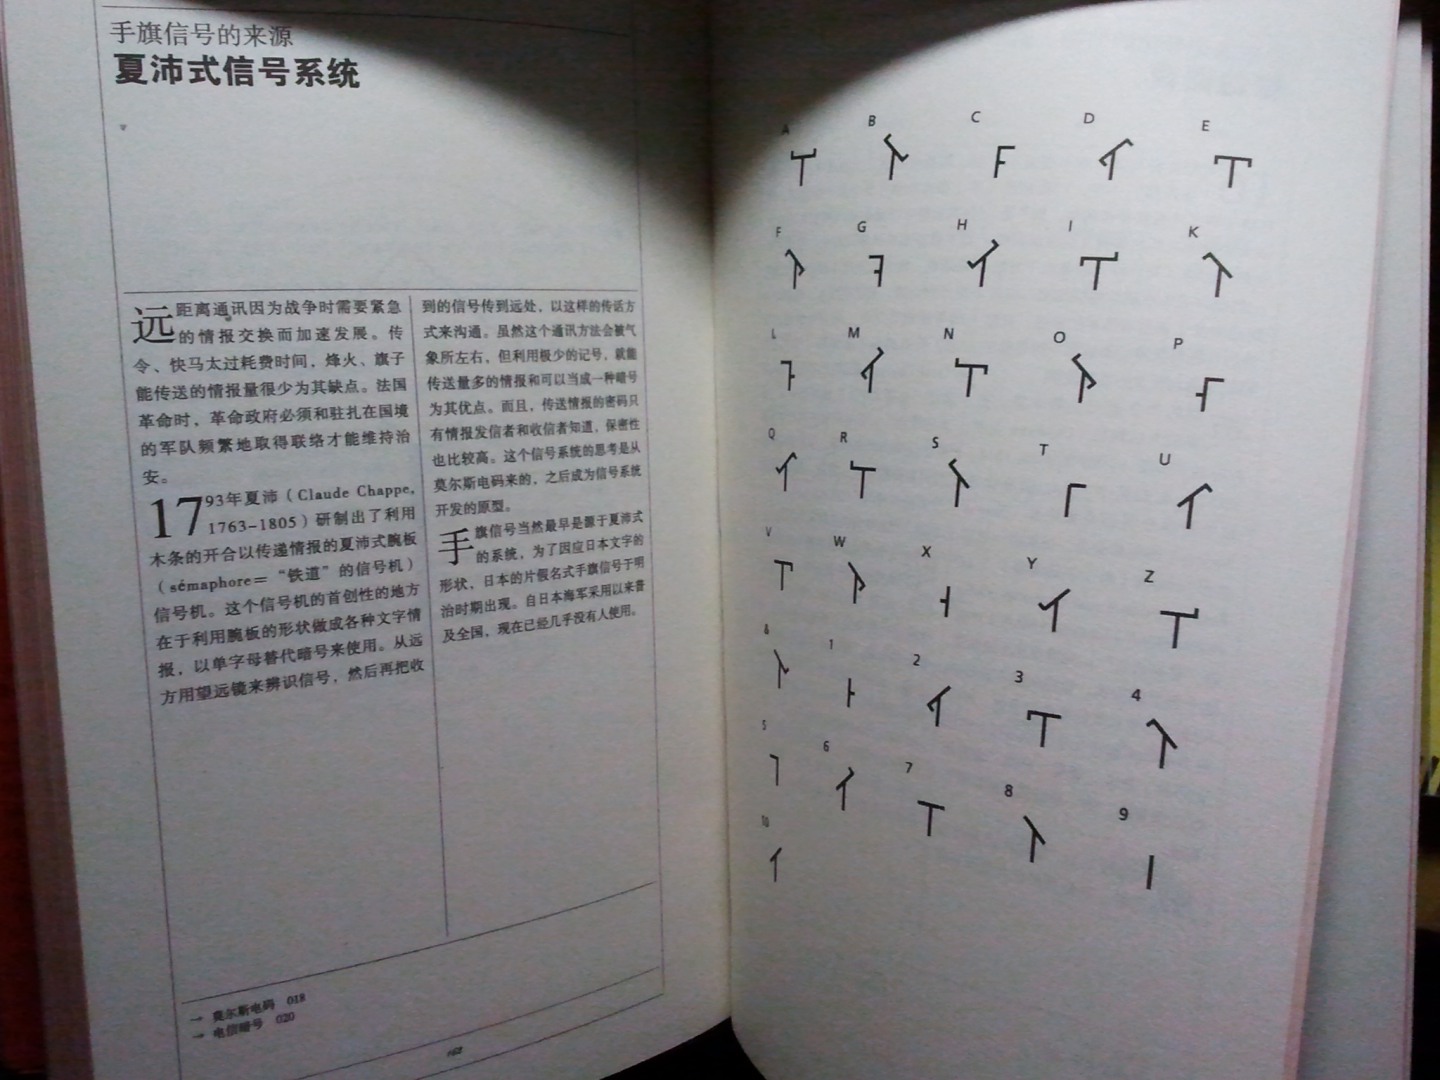 手旗信号的来源
夏沛式信号系统
远距离通讯因为战争时需要紧急
的情报交换而加速发展。传
令、快马太过耗费时间，烽火、旗子
能传送的情报量很少为其缺点。法国
革命时，革命政府必须和驻扎在国境
的军队频繁地取得联络才能维持治
安。
1793年夏沛（Claude Chappe,
1763-1805）研制出了利用
木条的开合以传递情报的夏沛式腕板
（sémaphore＝“铁道”的信号机）
信号机。这个信号机的首创性的地方
在于利用腕板的形状做成各种文字情
报，以单字母替代暗号来使用。从远
方用望远镜来辨识信号，然后再把收
到的信号传到远处，以这样的传话方
式来沟通。虽然这个通讯方法会被气
象所左右，但利用极少的记号，就能
传送量多的情报和可以当成一种暗号
为其优点。而且，传送情报的密码只
有情报发信者和收信者知道，保密性
也比较高。这个信号系统的思考是从
莫尔斯电码来的，之后成为信号系统
开发的原型。
手旗信号当然最早是源于夏沛式
的系统，为了因应日本文字的
形状，日本的片假名式手旗信号于明
治时期出现。自日本海军采用以来普
及全国，现在已经几乎没有人使用。
→ 莫尔斯电码 018
→ 电信暗号 020
162
A B C D E
F G H I K
L M N O P
Q R S T U
V W X Y Z
& 1 2 3 4
5 6 7 8 9
10